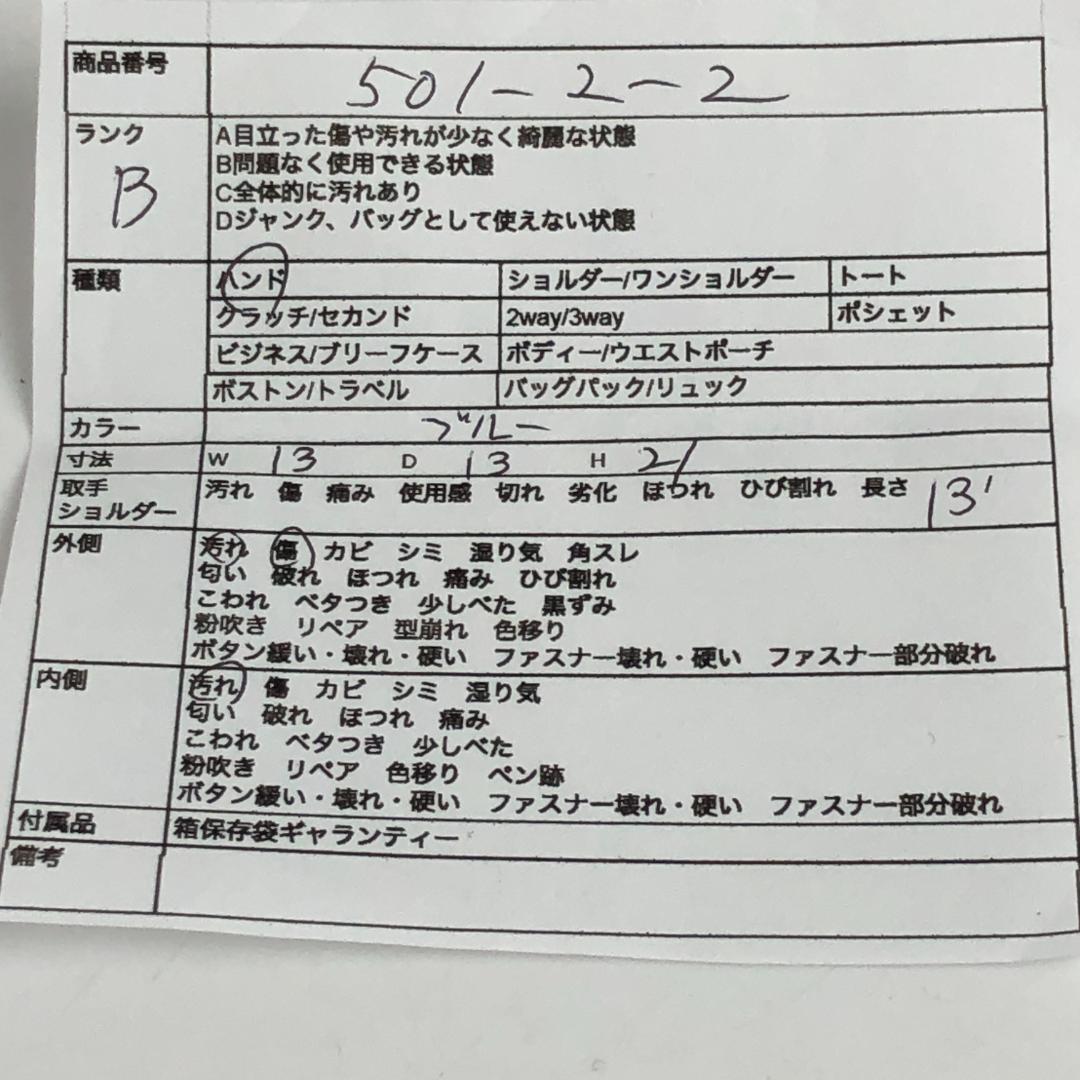 商品番号 501-2-2
ランク B
A目立った傷や汚れが少なく綺麗な状態
B問題なく使用できる状態
C全体的に汚れあり
Dジャンク、バッグとして使えない状態
種類 ハンド ショルダー/ワンショルダー トート
クラッチ/セカンド 2way/3way ポシェット
ビジネス/ブリーフケース ボディー/ウエストポーチ
ボストン/トラベル バッグパック/リュック
カラー ブルー
寸法 W 13 D 13 H 21
取手 汚れ 傷 痛み 使用感 切れ 劣化 ほつれ ひび割れ 長さ 13
ショルダー
外側 汚れ 傷 カビ シミ 湿り気 角スレ
匂い 破れ ほつれ 痛み ひび割れ
こわれ ベタつき 少しべた 黒ずみ
粉吹き リペア 型崩れ 色移り
ボタン緩い・壊れ・硬い ファスナー壊れ・硬い ファスナー部分破れ
内側 汚れ 傷 カビ シミ 湿り気
匂い 破れ ほつれ 痛み
こわれ ベタつき 少しべた
粉吹き リペア 色移り ペン跡
ボタン緩い・壊れ・硬い ファスナー壊れ・硬い ファスナー部分破れ
付属品 箱保存袋ギャランティー
備考